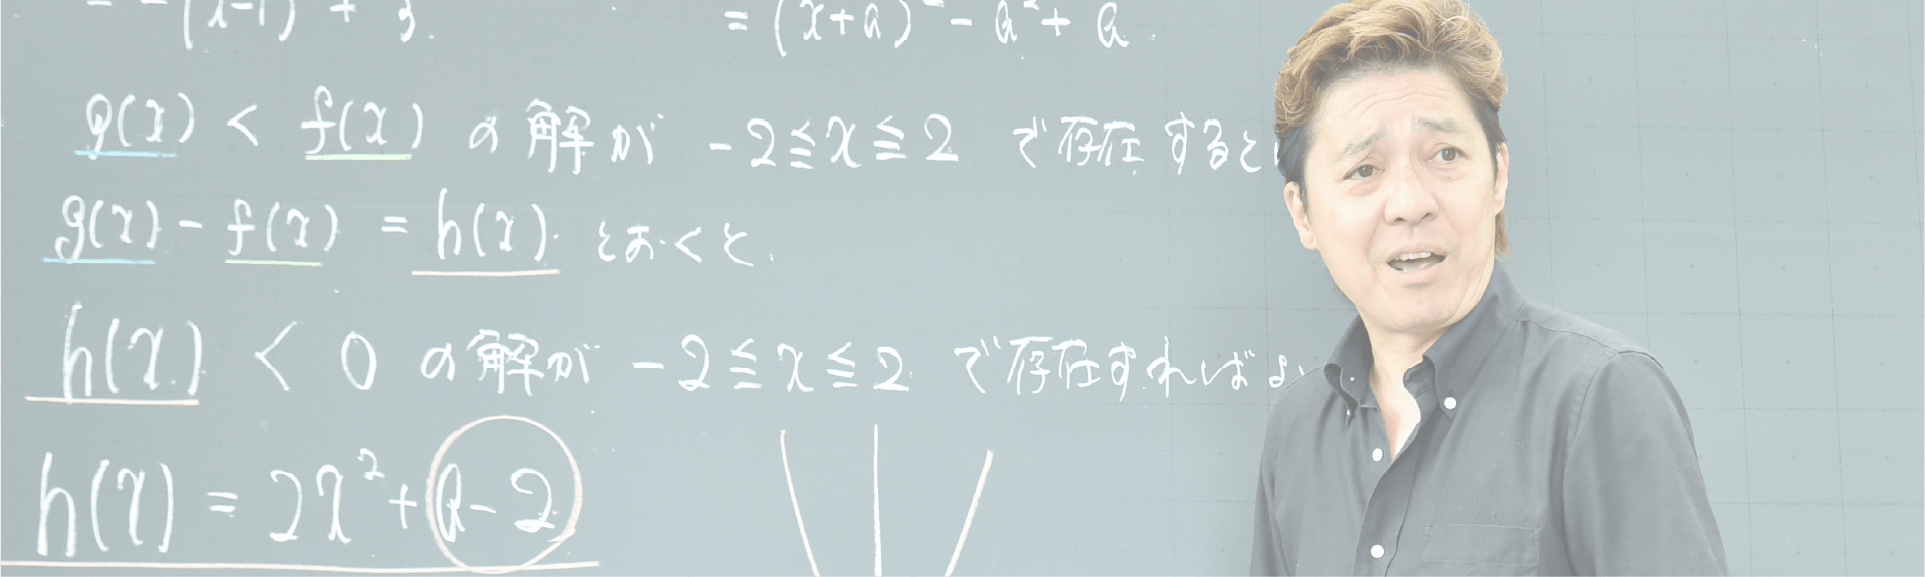 = -(x-1)² + 3.
= (x+a)² - a² + a.
g(x) < f(x) の解が -2≦x≦2 で存在すると
g(x) - f(x) = h(x) とおくと、
h(x) < 0 の解が -2≦x≦2 で存在すればよい.
h(x) = 2x² + a-2